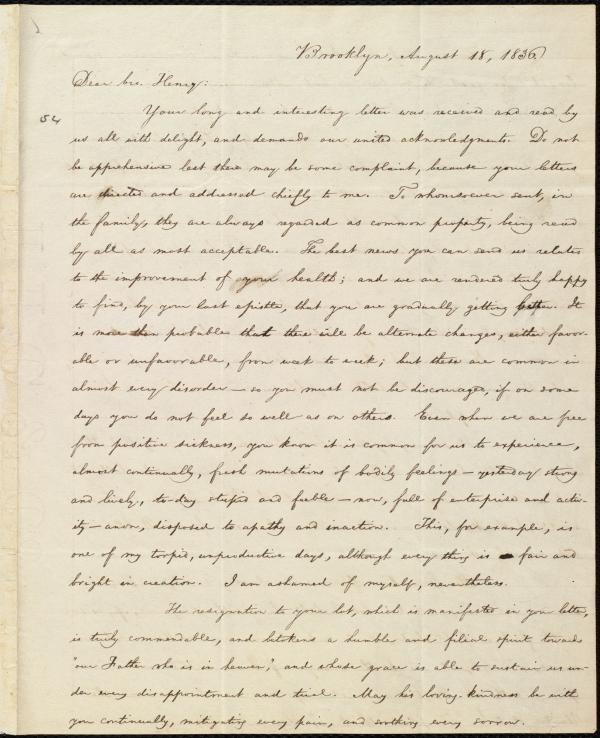 Brooklyn, August 18, 1836.
Dear bro. Henry:
54
Your long and interesting letter was received and read by
us all with delight, and demands our united acknowledgments. Do not
be apprehensive lest there may be some complaint, because your letters
are directed and addressed chiefly to me. To whomsoever sent, in
the family, they are always regarded as common property, being read
by all as most acceptable. The best news you can send us relates
to the improvement of your health; and we are rendered truly happy
to find, by your last epistle, that you are gradually getting better. It
is more than probable that there will be alternate changes, either favor-
able or unfavorable, from week to week; but these are common in
almost every disorder — so you must not be discouraged, if on some
days you do not feel so well as on others. Even when we are free
from positive sickness, you know it is common for us to experience,
almost continually, fresh mutations of bodily feelings — yesterday strong
and lively, to-day stupid and feeble — now, full of enterprise and activ-
ity — anon, disposed to apathy and inaction. This, for example, is
one of my torpid, unproductive days, although every thing is fair and
bright in creation. I am ashamed of myself, nevertheless.
The resignation to your lot, which is manifested in your letter,
is truly commendable, and betokens a humble and filial spirit towards
"our Father who is in heaven," and whose grace is able to sustain us un-
der every disappointment and trial. May his loving-kindness be with
you continually, mitigating every pain, and soothing every sorrow.